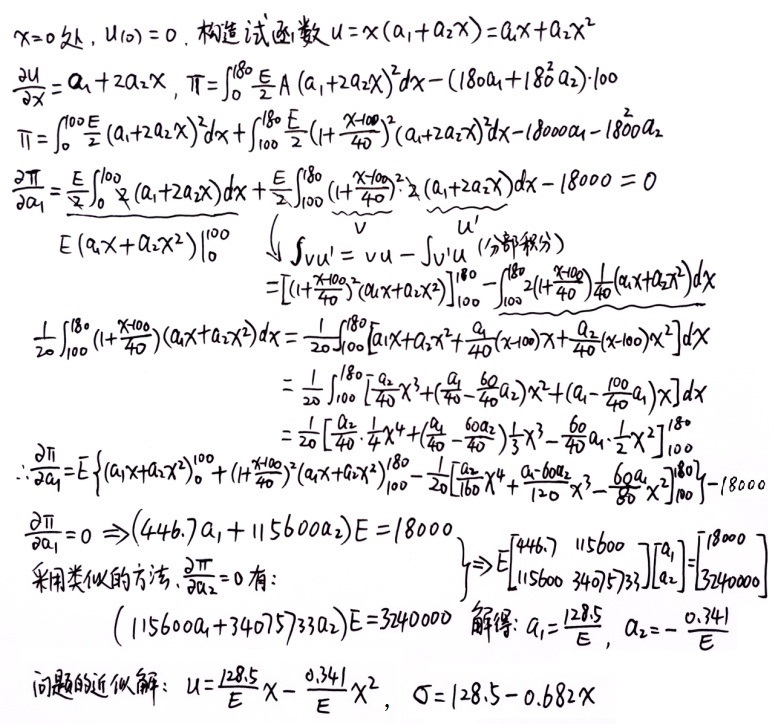 x=0处, u(0)=0. 构造试函数 u=x(a₁+a₂x)=a₁x+a₂x²
∂u/∂x=a₁+2a₂x, π=∫₀¹⁸⁰ E/2 A(a₁+2a₂x)²dx-(180a₁+180²a₂)·100
π=∫₀¹⁰⁰ E/2 (a₁+2a₂x)²dx+∫₁₀₀¹⁸⁰ E/2 (1+(x-100)/40)²(a₁+2a₂x)²dx-18000a₁-1800²a₂
∂π/∂a₁=E/2∫₀¹⁰⁰ 2(a₁+2a₂x)dx+E/2∫₁₀₀¹⁸⁰(1+(x-100)/40)²·2(a₁+2a₂x)dx-18000=0
v u'
E(a₁x+a₂x²)|₀¹⁰⁰ ↓ ∫vu'=vu-∫v'u (分部积分)
=[(1+(x-100)/40)²(a₁x+a₂x²)]₁₀₀¹⁸⁰-∫₁₀₀¹⁸⁰2(1+(x-100)/40)1/40(a₁x+a₂x²)dx
1/20∫₁₀₀¹⁸⁰(1+(x-100)/40)(a₁x+a₂x²)dx=1/20∫₁₀₀¹⁸⁰[a₁x+a₂x²+a₁/40(x-100)x+a₂/40(x-100)x²]dx
=1/20∫₁₀₀¹⁸⁰[a₂/40x³+(a₁/40-60/40a₂)x²+(a₁-100/40a₁)x]dx
=1/20[a₂/40·1/4x⁴+(a₁/40-60a₂/40)1/3x³-60/40a₁·1/2x²]₁₀₀¹⁸⁰
∴∂π/∂a₁=E{(a₁x+a₂x²)₀¹⁰⁰+(1+(x-100)/40)²(a₁x+a₂x²)₁₀₀¹⁸⁰-1/20[a₂/160x⁴+(a₁-60a₂)/120x³-60a₁/80x²]₁₀₀¹⁸⁰}-18000
∂π/∂a₁=0⇒(446.7a₁+115600a₂)E=18000
采用类似的方法,∂π/∂a₂=0有:
(115600a₁+34075733a₂)E=3240000
}⇒E[446.7 115600; 115600 34075733][a₁; a₂]=[18000; 3240000]
解得: a₁=128.5/E, a₂=-0.341/E
问题的近似解: u=128.5/E x-0.341/E x², σ=128.5-0.682x